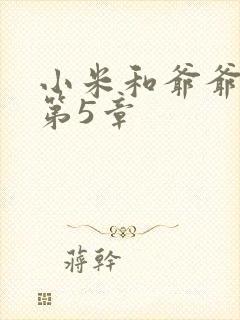 小米和爷爷
第5章
蒋幹